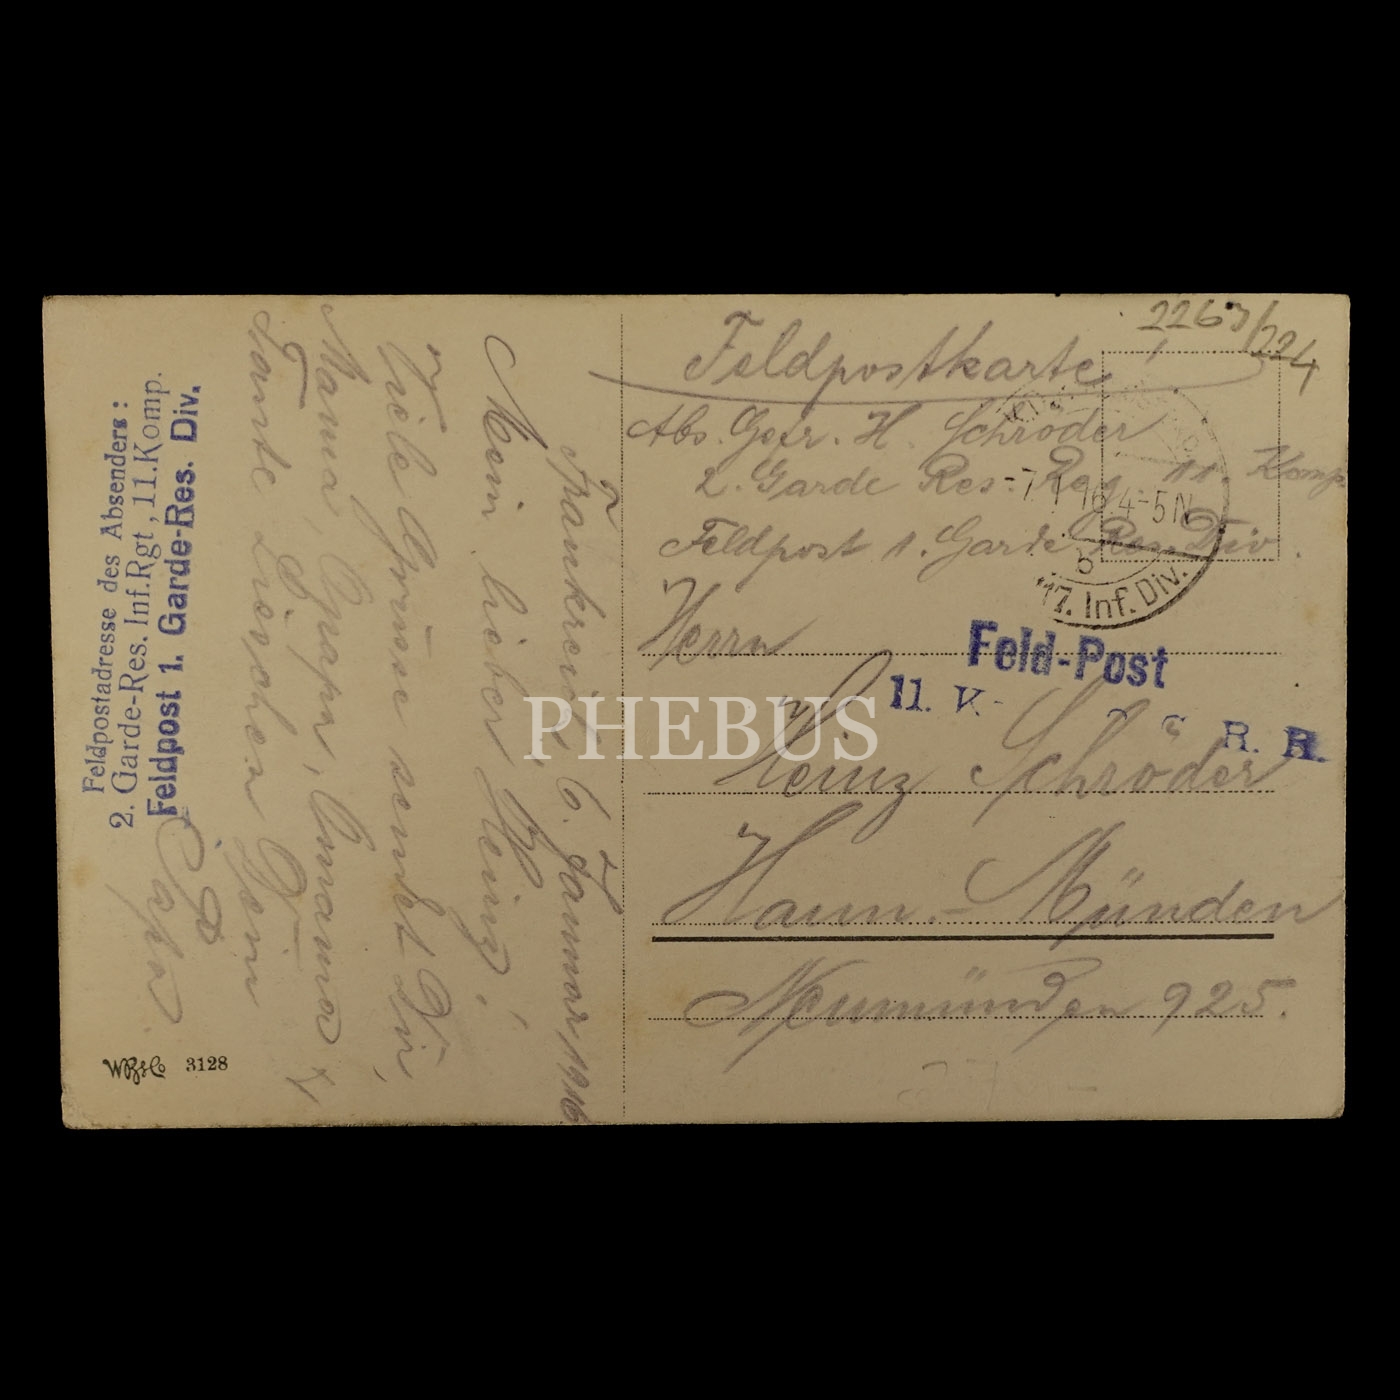 Feldpostkarte
2263/224
Abs. Gefr. H. Schröder
2. Garde Res. Reg. 11. Komp.
Feldpost 1. Garde Res. Div.
-7.1.16. 4-5N
b
117. Inf. Div.
Herrn
Heinz Schröder
Hann.-Münden
Neumünden 925.
Feld-Post
11. K
R. R.
Frankreich, 6. Januar 1916
Mein lieber Heinz!
Viele Grüsse sendet Dir,
Mama, Opapa, Omama u.
Tante Lieschen Dein
Papa
Feldpostadresse des Absenders:
2. Garde-Res. Inf. Rgt, 11. Komp.
Feldpost 1. Garde-Res. Div.
3128
PHEBUS